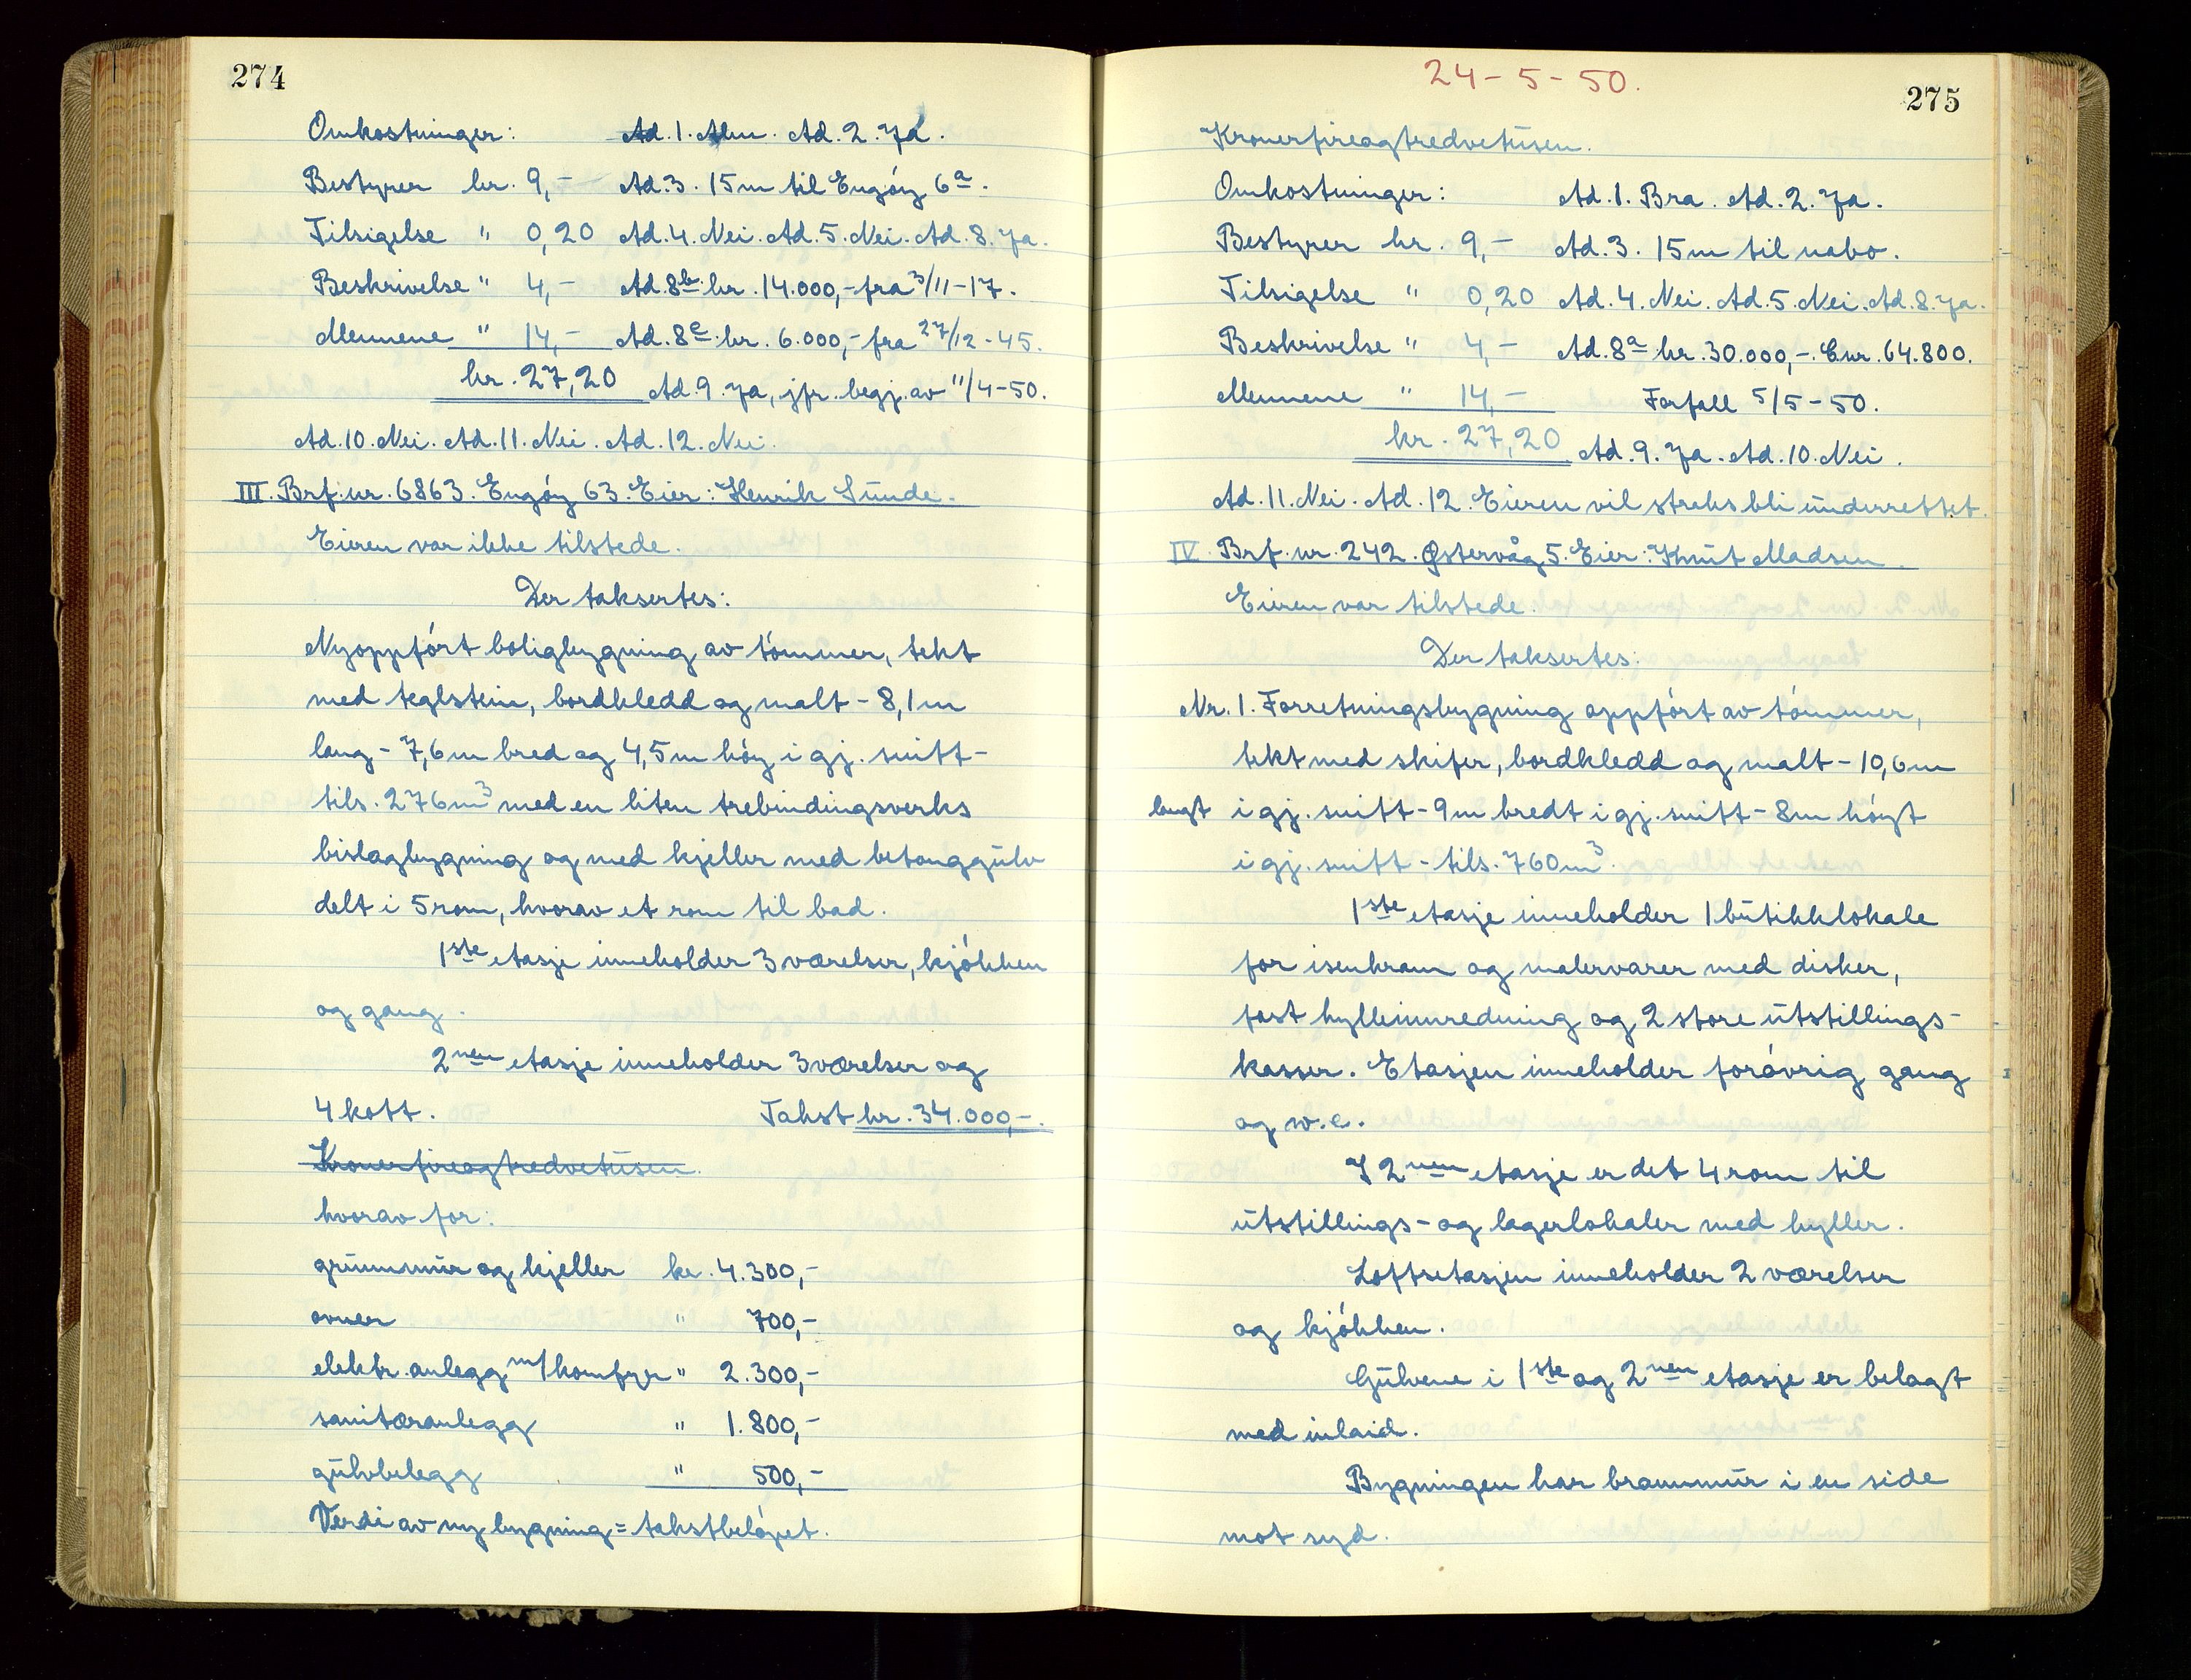 274
Omkostninger: Ad. 1. Alm. Ad. 2. Ja.
Bestyrer kr. 9,- Ad. 3. 15 m til Engöy 6a.
Tilsigelse " 0,20 Ad. 4. Nei. Ad. 5. Nei. Ad. 8. Ja.
Beskrivelse " 4,- Ad. 8b kr. 14.000,- fra 3/11-17.
Mennene " 14,- Ad. 8c kr. 6.000,- fra 27/12-45.
kr. 27,20 Ad. 9. Ja, jfr. begj. av 11/4-50.
Ad. 10. Nei. Ad. 11. Nei. Ad. 12. Nei.
III. Brf. nr. 6863. Engöy 63. Eier: Henrik Sunde.
Eieren var ikke tilstede.
Der taksertes:
Nyoppfört boligbygning av tömmer, tekt
med teglstein, bordkledd og malt - 8,1 m
lang - 7,6 m bred og 4,5 m höy i gj. snitt -
tils. 276 m3 med en liten trebindingsverks
bislagbygning og med kjeller med betonggulv
delt i 5 rom, hvorav et rom til bad.
1ste etasje inneholder 3 værelser, kjökken
og gang.
2nen etasje inneholder 3 værelser og
4 kott. Takst kr. 34.000,-.
Kronerfireogtredvetusen.
hvorav for:
grunnmur og kjeller kr. 4.300,-
ovner " 700,-
elektr. anlegg m/komfyr " 2.300,-
sanitæranlegg " 1.800,-
gulvbelegg " 500,-
Verdi av ny bygning = takstbelöpet.
24-5-50.
275
Kronerfireogtredvetusen.
Omkostninger: Ad. 1. Bra. Ad. 2. Ja.
Bestyrer kr. 9,- Ad. 3. 15 m til nabo.
Tilsigelse " 0,20 Ad. 4. Nei. Ad. 5. Nei. Ad. 8. Ja.
Beskrivelse " 4,- Ad. 8a kr. 30.000,-. C nr. 64.800.
Mennene " 14,- Forfall 5/5-50.
kr. 27,20 Ad. 9. Ja. Ad. 10. Nei.
Ad. 11. Nei. Ad. 12. Eieren vil straks bli underrettet.
IV. Brf. nr. 242. Østervåg 5. Eier: Knut Madsen.
Eieren var tilstede.
Der taksertes:
Nr. 1. Forretningsbygning oppfört av tömmer,
tekt med skifer, bordkledd og malt - 10,6 m
langt i gj. snitt - 9 m bredt i gj. snitt - 8 m höyt
i gj. snitt - tils. 760 m3.
1ste etasje inneholder 1 butikklokale
for isenkram og malervarer med disker,
fast hylleinnredning og 2 store utstillings-
kasser. Etasjen inneholder forövrig gang
og w.c.
I 2nen etasje er det 4 rom til
utstillings- og lagerlokaler med hyller.
Loftsetasjen inneholder 2 værelser
og kjökken.
Gulvene i 1ste og 2nen etasje er belagt
med inlaid.
Bygningen har brannmur i en side
mot syd.